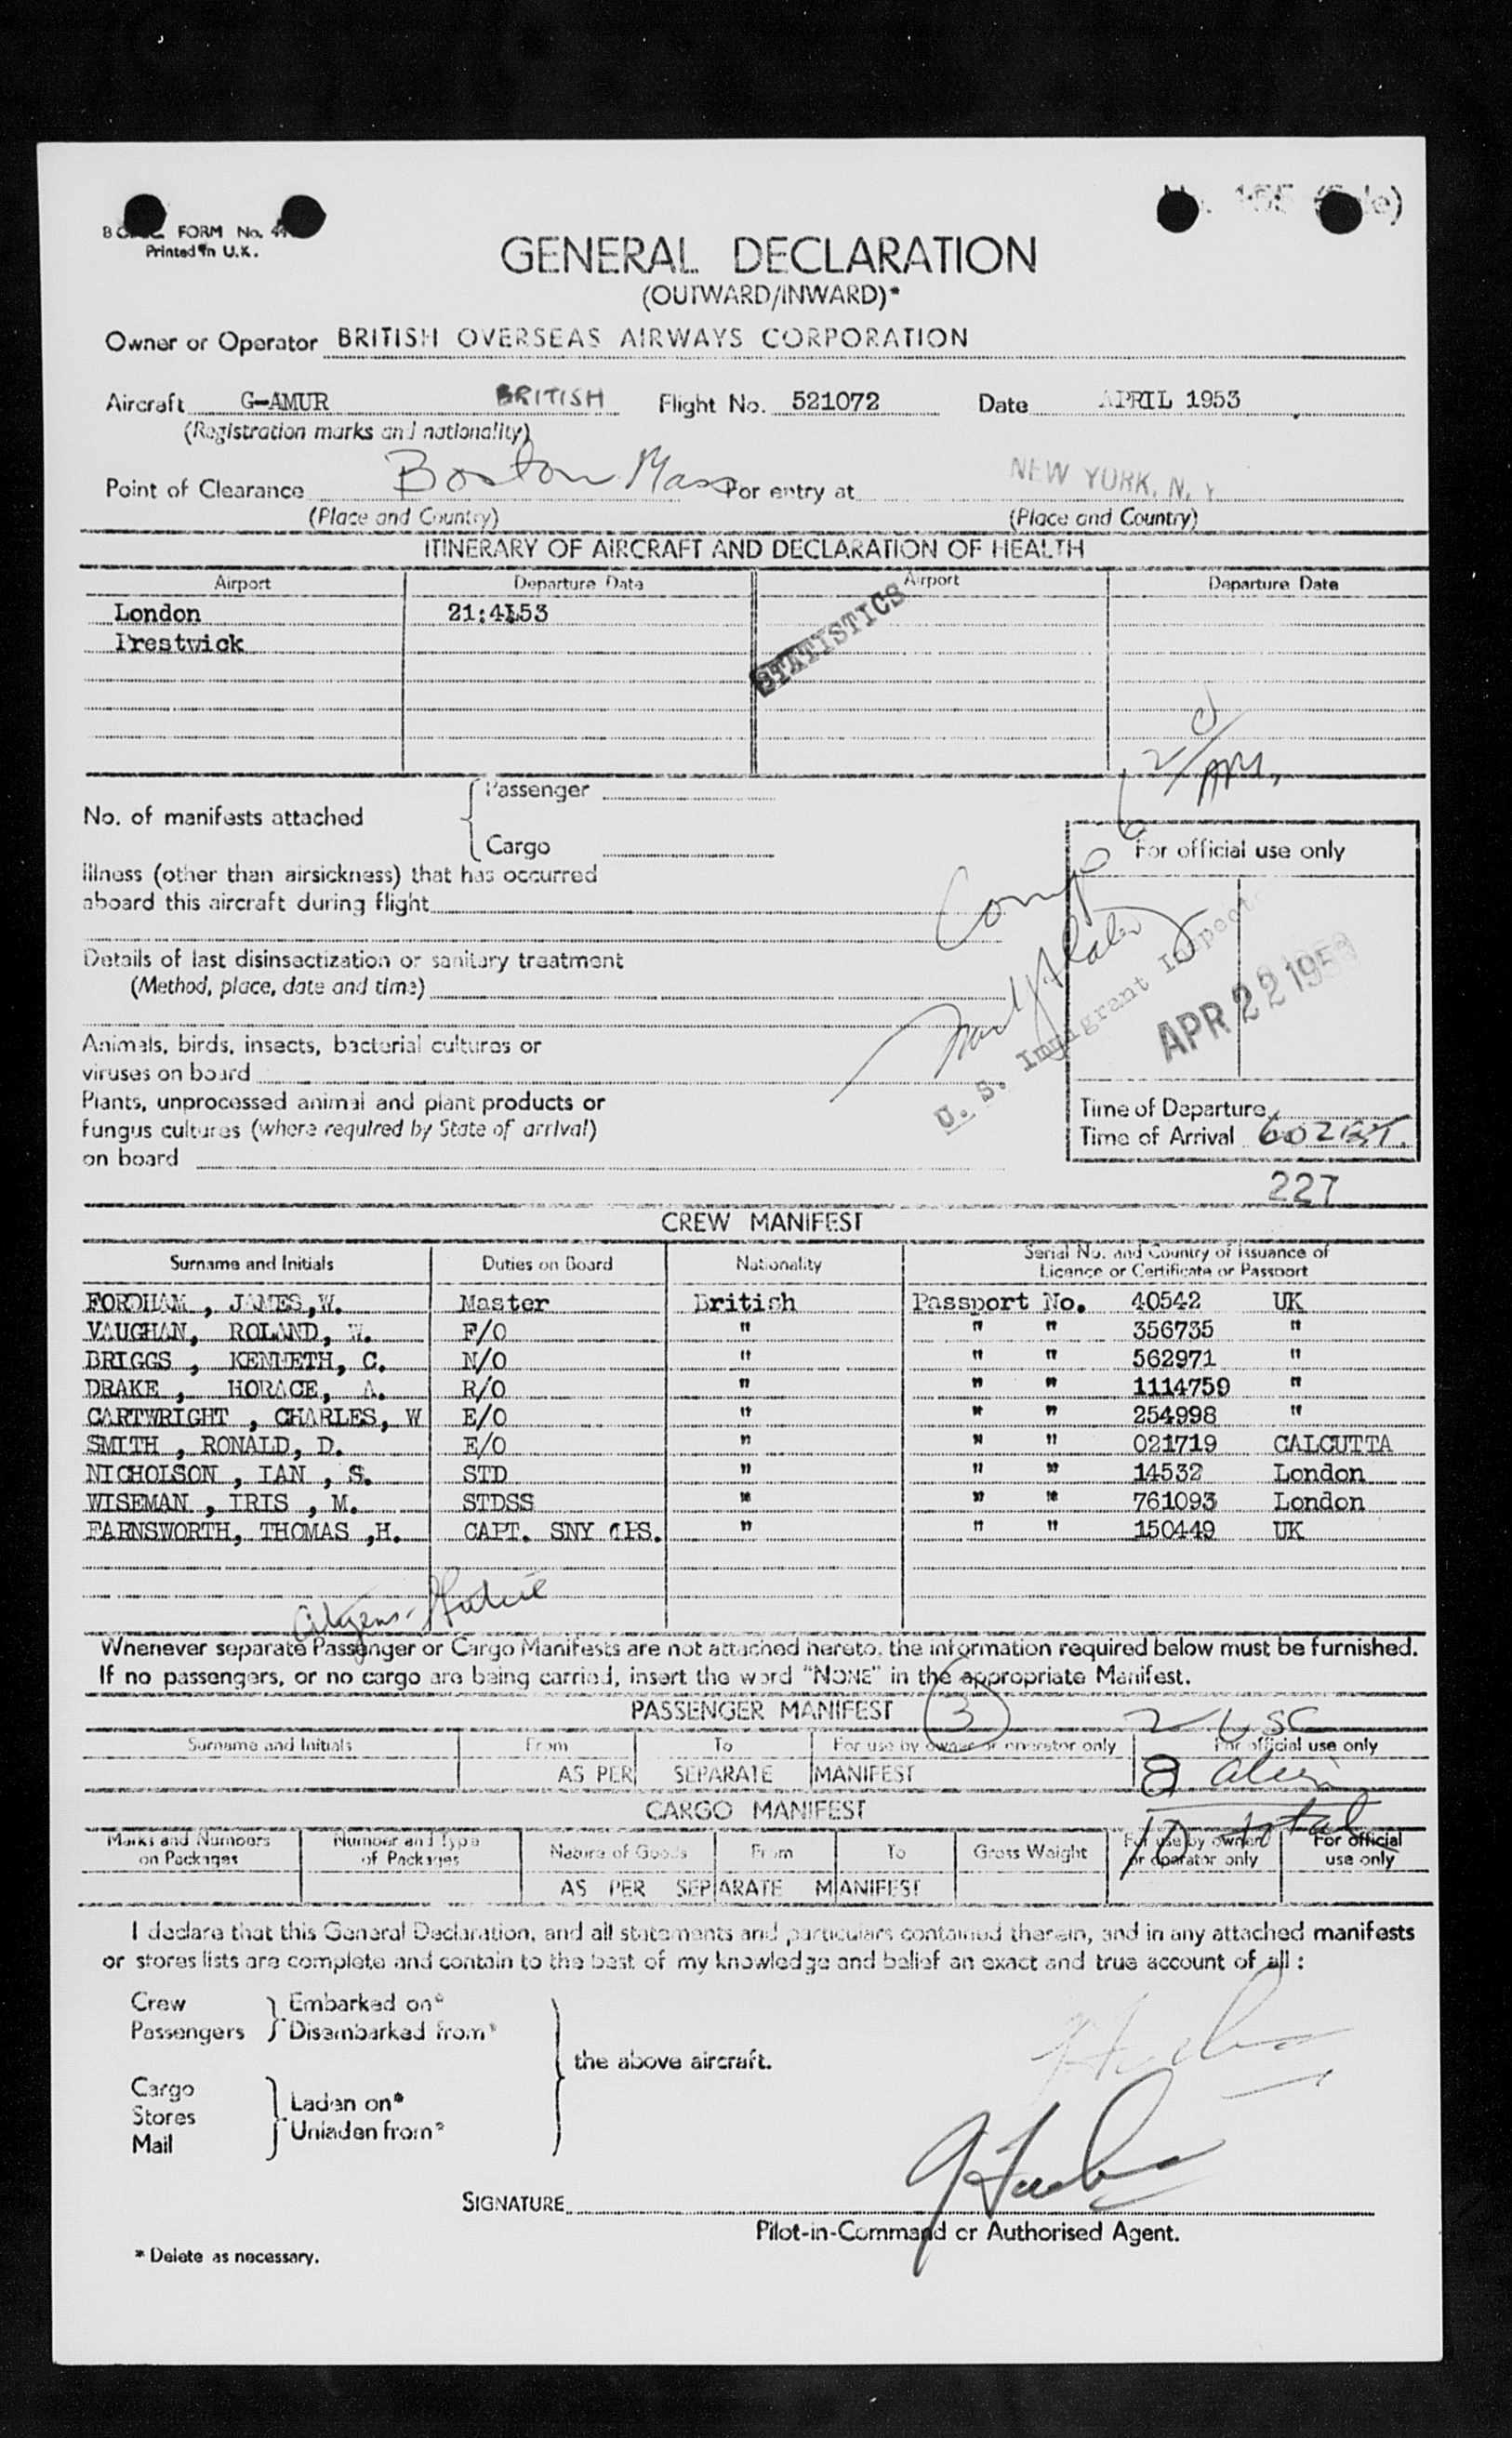 FORM No.
Printed in U.K.
GENERAL DECLARATION
(OUTWARD/INWARD)*
Owner or Operator BRITISH OVERSEAS AIRWAYS CORPORATION
Aircraft G-AMUR BRITISH Flight No. 521072 Date APRIL 1953
(Registration marks and nationality)
Point of Clearance Boston Mass For entry at NEW YORK, N. Y
(Place and Country) (Place and Country)
ITINERARY OF AIRCRAFT AND DECLARATION OF HEALTH
Airport Departure Date Airport Departure Date
London
Prestwick
STATISTICS
No. of manifests attached
Passenger
Cargo
For official use only
Illness (other than airsickness) that has occurred
aboard this aircraft during flight
Details of last disinsectization or sanitary treatment
(Method, place, date and time)
U. S. Immigrant Inspector
APR 22 1953
Animals, birds, insects, bacterial cultures or
viruses on board
Plants, unprocessed animal and plant products or
fungus cultures (where required by State of arrival)
on board
Time of Departure
Time of Arrival
227
CREW MANIFEST
Surname and Initials Duties on Board Nationality Serial No. and Country of Issuance of
Licence or Certificate or Passport
FORDHAM , JAMES,W. Master British Passport No. 40542 UK
VAUGHAN, ROLAND, W. F/O " " " 356735 "
BRIGGS , KENNETH, C. N/O " " " 562971 "
DRAKE , HORACE, A. R/O " " " 1114759 "
CARTWRIGHT , CHARLES, W E/O " " " 254998 "
SMITH , RONALD, D. E/O " " " 021719 CALCUTTA
NICHOLSON , IAN , S. STD " " " 14532 London
WISEMAN , IRIS , M. STDSS " " " 761093 London
FARNSWORTH, THOMAS ,H. CAPT. SNY " " " 150449 UK
Whenever separate Passenger or Cargo Manifests are not attached hereto, the information required below must be furnished.
If no passengers, or no cargo are being carried, insert the word "NONE" in the appropriate Manifest.
PASSENGER MANIFEST 3 2 USC
Surname and Initials From To For use by owner or operator only For official use only
AS PER SEPARATE MANIFEST 8 alien
CARGO MANIFEST
10 total
Marks and Numbers
on Packages
Number and Type
of Packages
Nature of Goods From To Gross Weight
For use by owner
or operator only
For official
use only
AS PER SEPARATE MANIFEST
I declare that this General Declaration, and all statements and particulars contained therein, and in any attached manifests
or stores lists are complete and contain to the best of my knowledge and belief an exact and true account of all :
Crew
Passengers
Embarked on*
Disembarked from*
the above aircraft.
Cargo
Stores
Mail
Laden on*
Unladen from*
SIGNATURE
Pilot-in-Command or Authorised Agent.
* Delete as necessary.